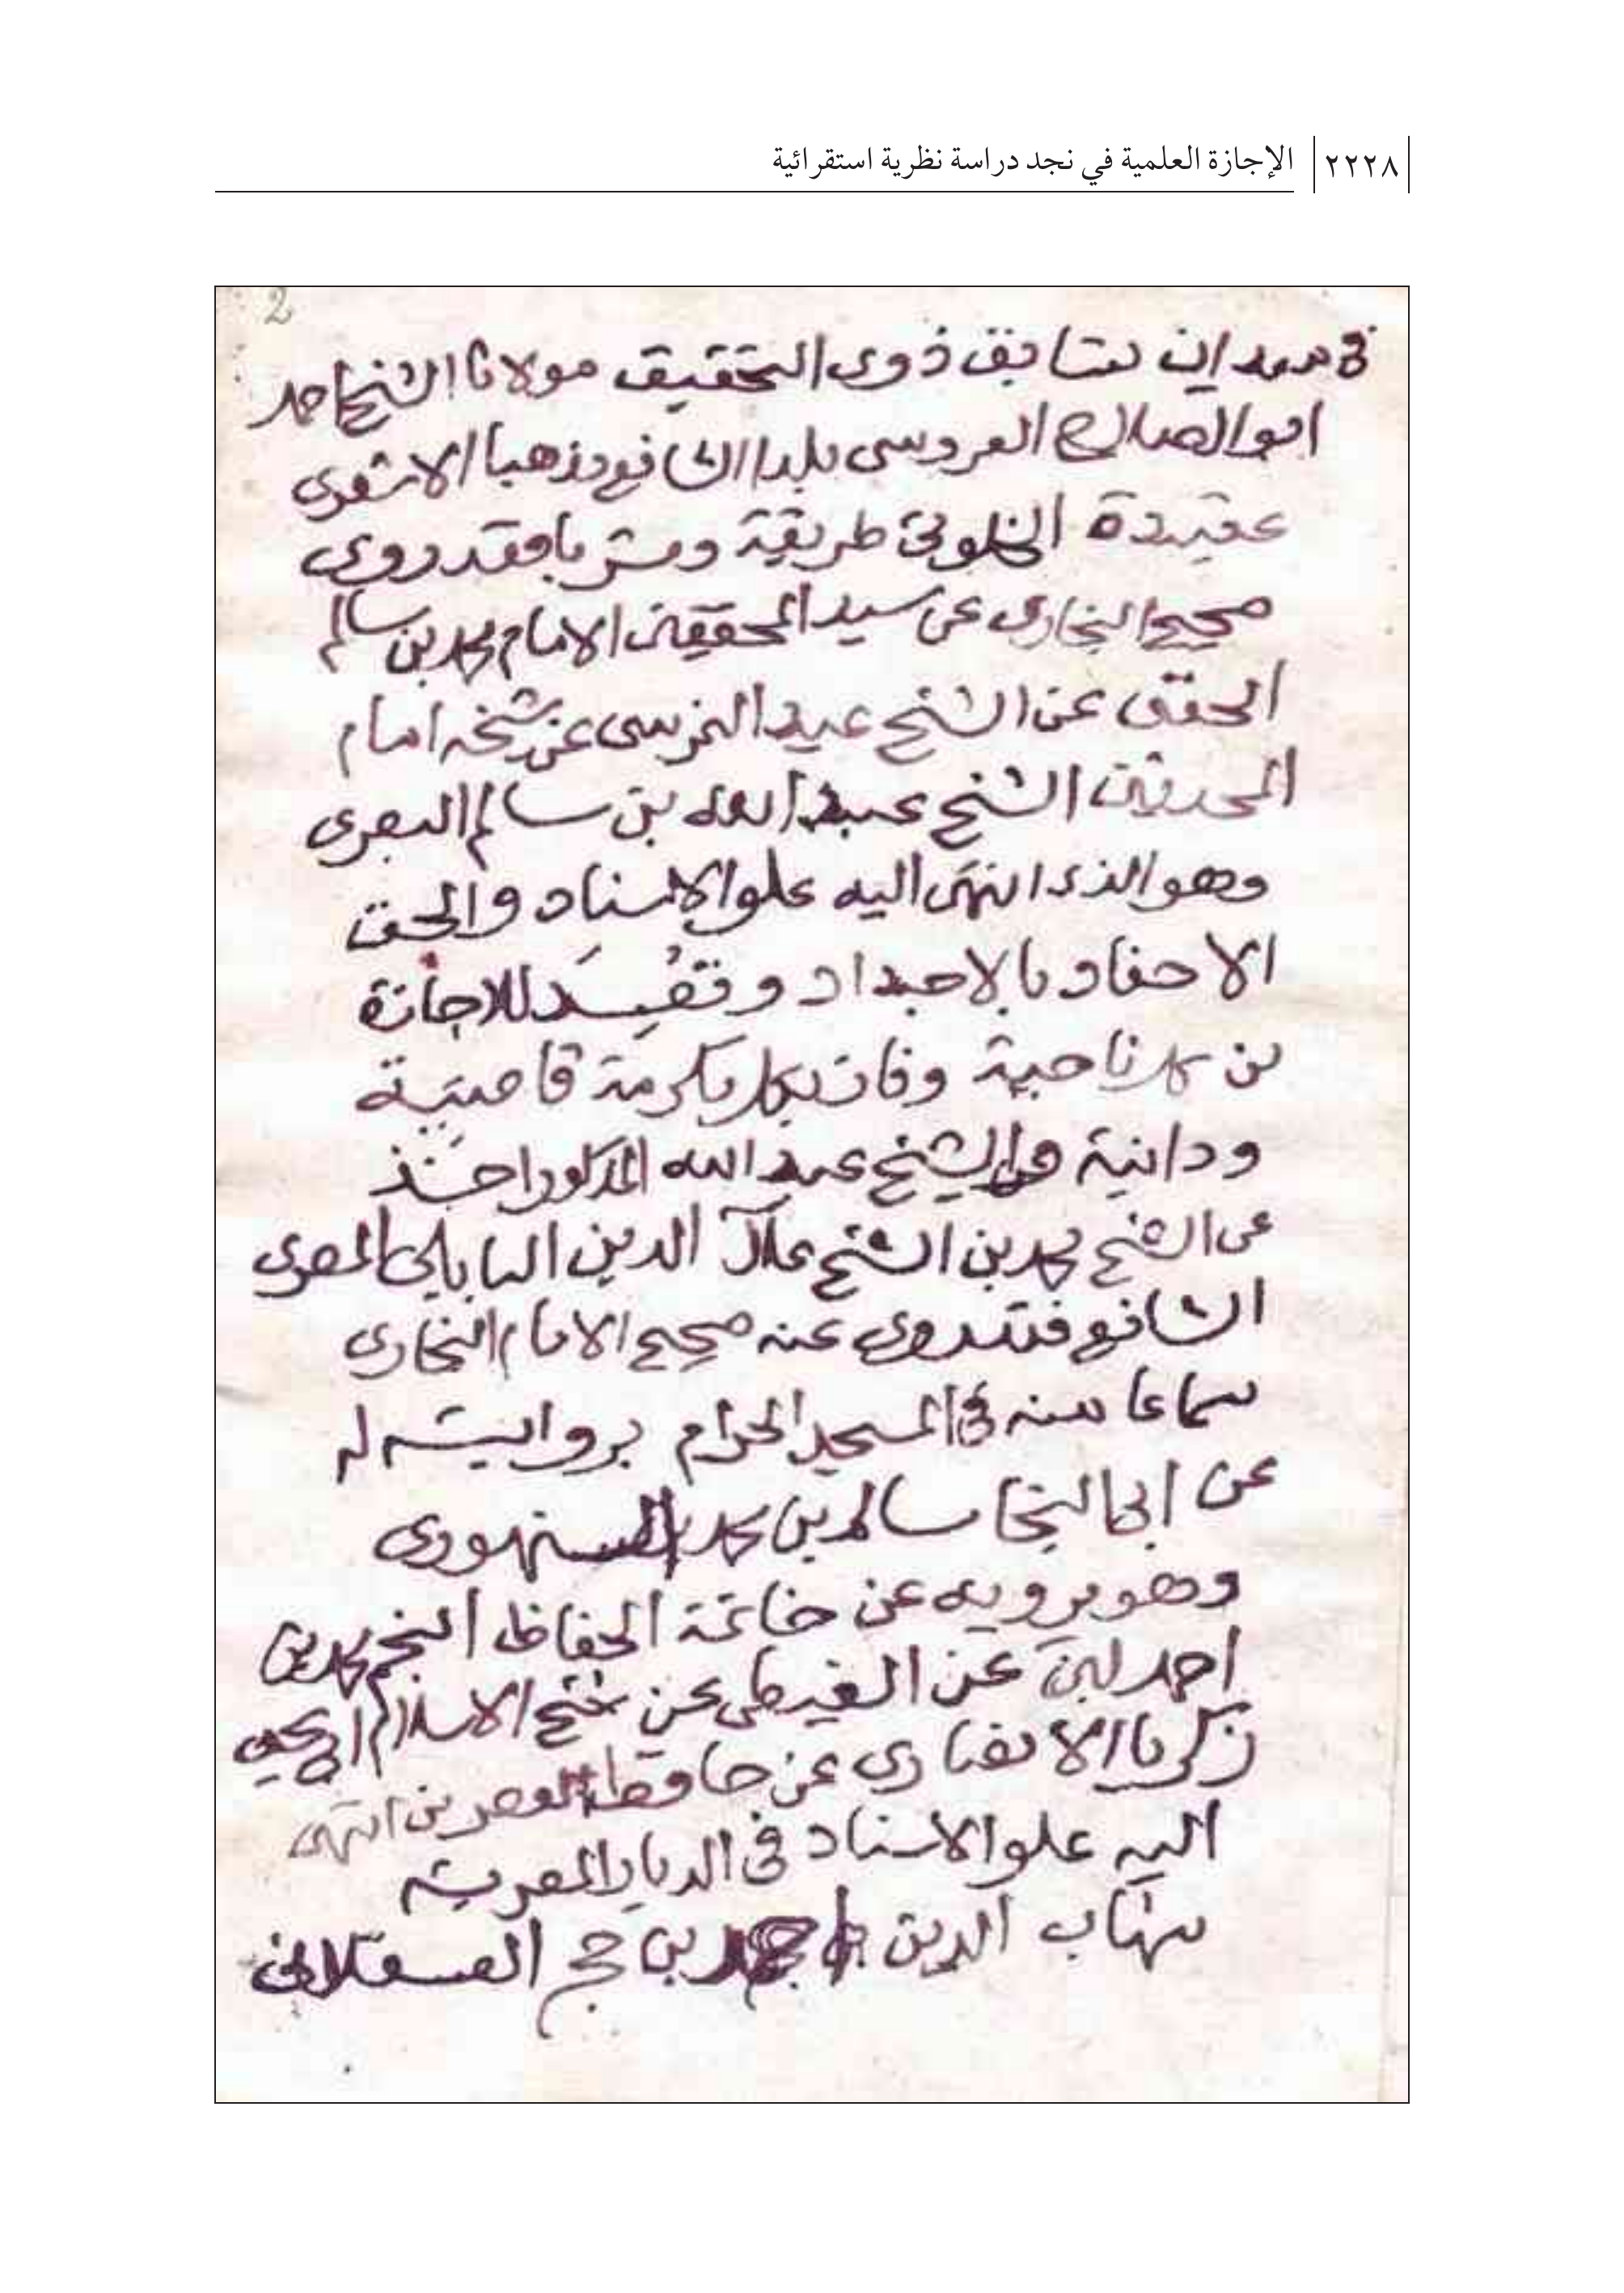 ٢٢٢٨ الإجازة العلمية في نجد دراسة نظرية استقرائية
2
في ميدان تسابق ذوى التحقيق مولانا الشيخ احمد
ابو الصلاح العروسى بلدا الشافعى مذهبا الاشعرى
عقيدة الخلوتى طريقة ومشربا فقد روى
صحيح البخارى عن سيد المحققين الامام محمد بن سالم
الحفنى عن الشيخ عيد النمرسى عن شيخه امام
المحدثين الشيخ عبد الله بن سالم البصرى
وهو الذى انتهى اليه علو الاسناد والحق
الاحفاد بالاجداد وقصد للاجازة
من كل ناحية وفاز بكل مكرمة قاصية
ودانية والشيخ عبد الله المذكور اخذ
عن الشيخ محمد بن الشيخ علاء الدين البابلى المصرى
الشافعى فقد روى عنه صحيح الامام البخارى
سماعا منه فى المسجد الحرام بروايته له
عن ابى النجا سالم بن محمد السنهورى
وهو يرويه عن خاتمة الحفاظ النجم محمد بن
احمد بن عن الغيطى عن شيخ الاسلام ابو يحيى
زكريا الانصارى عن حافظ العصر من انتهى
اليه علو الاسناد فى الديار المصرية
شهاب الدين احمد بن حجر العسقلانى